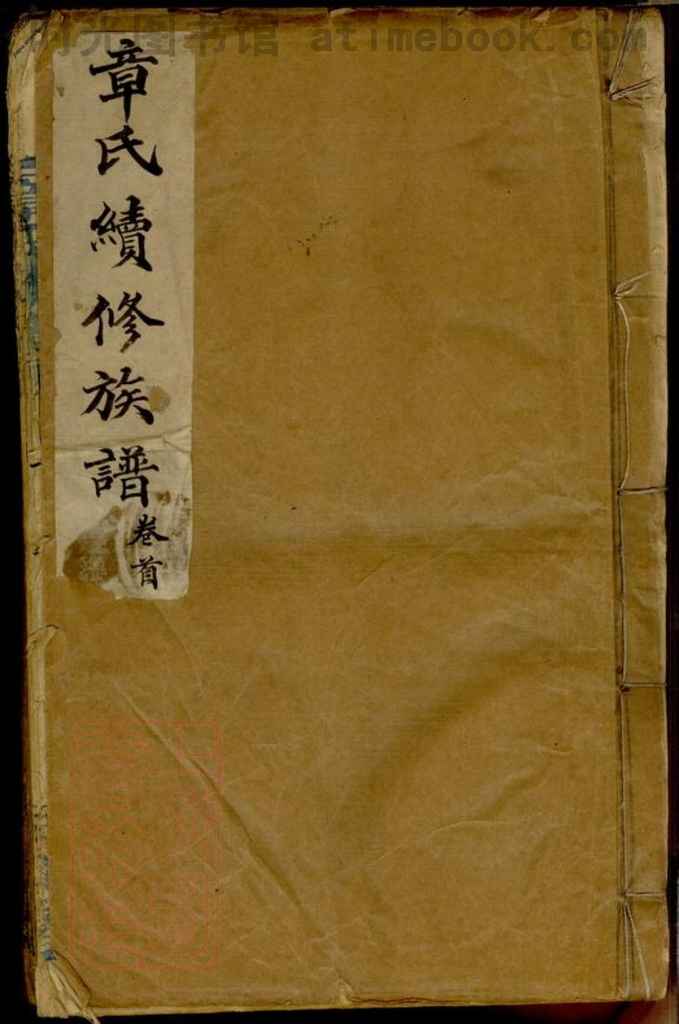 时光图书馆 atimebook.com
章氏續修族譜
卷首